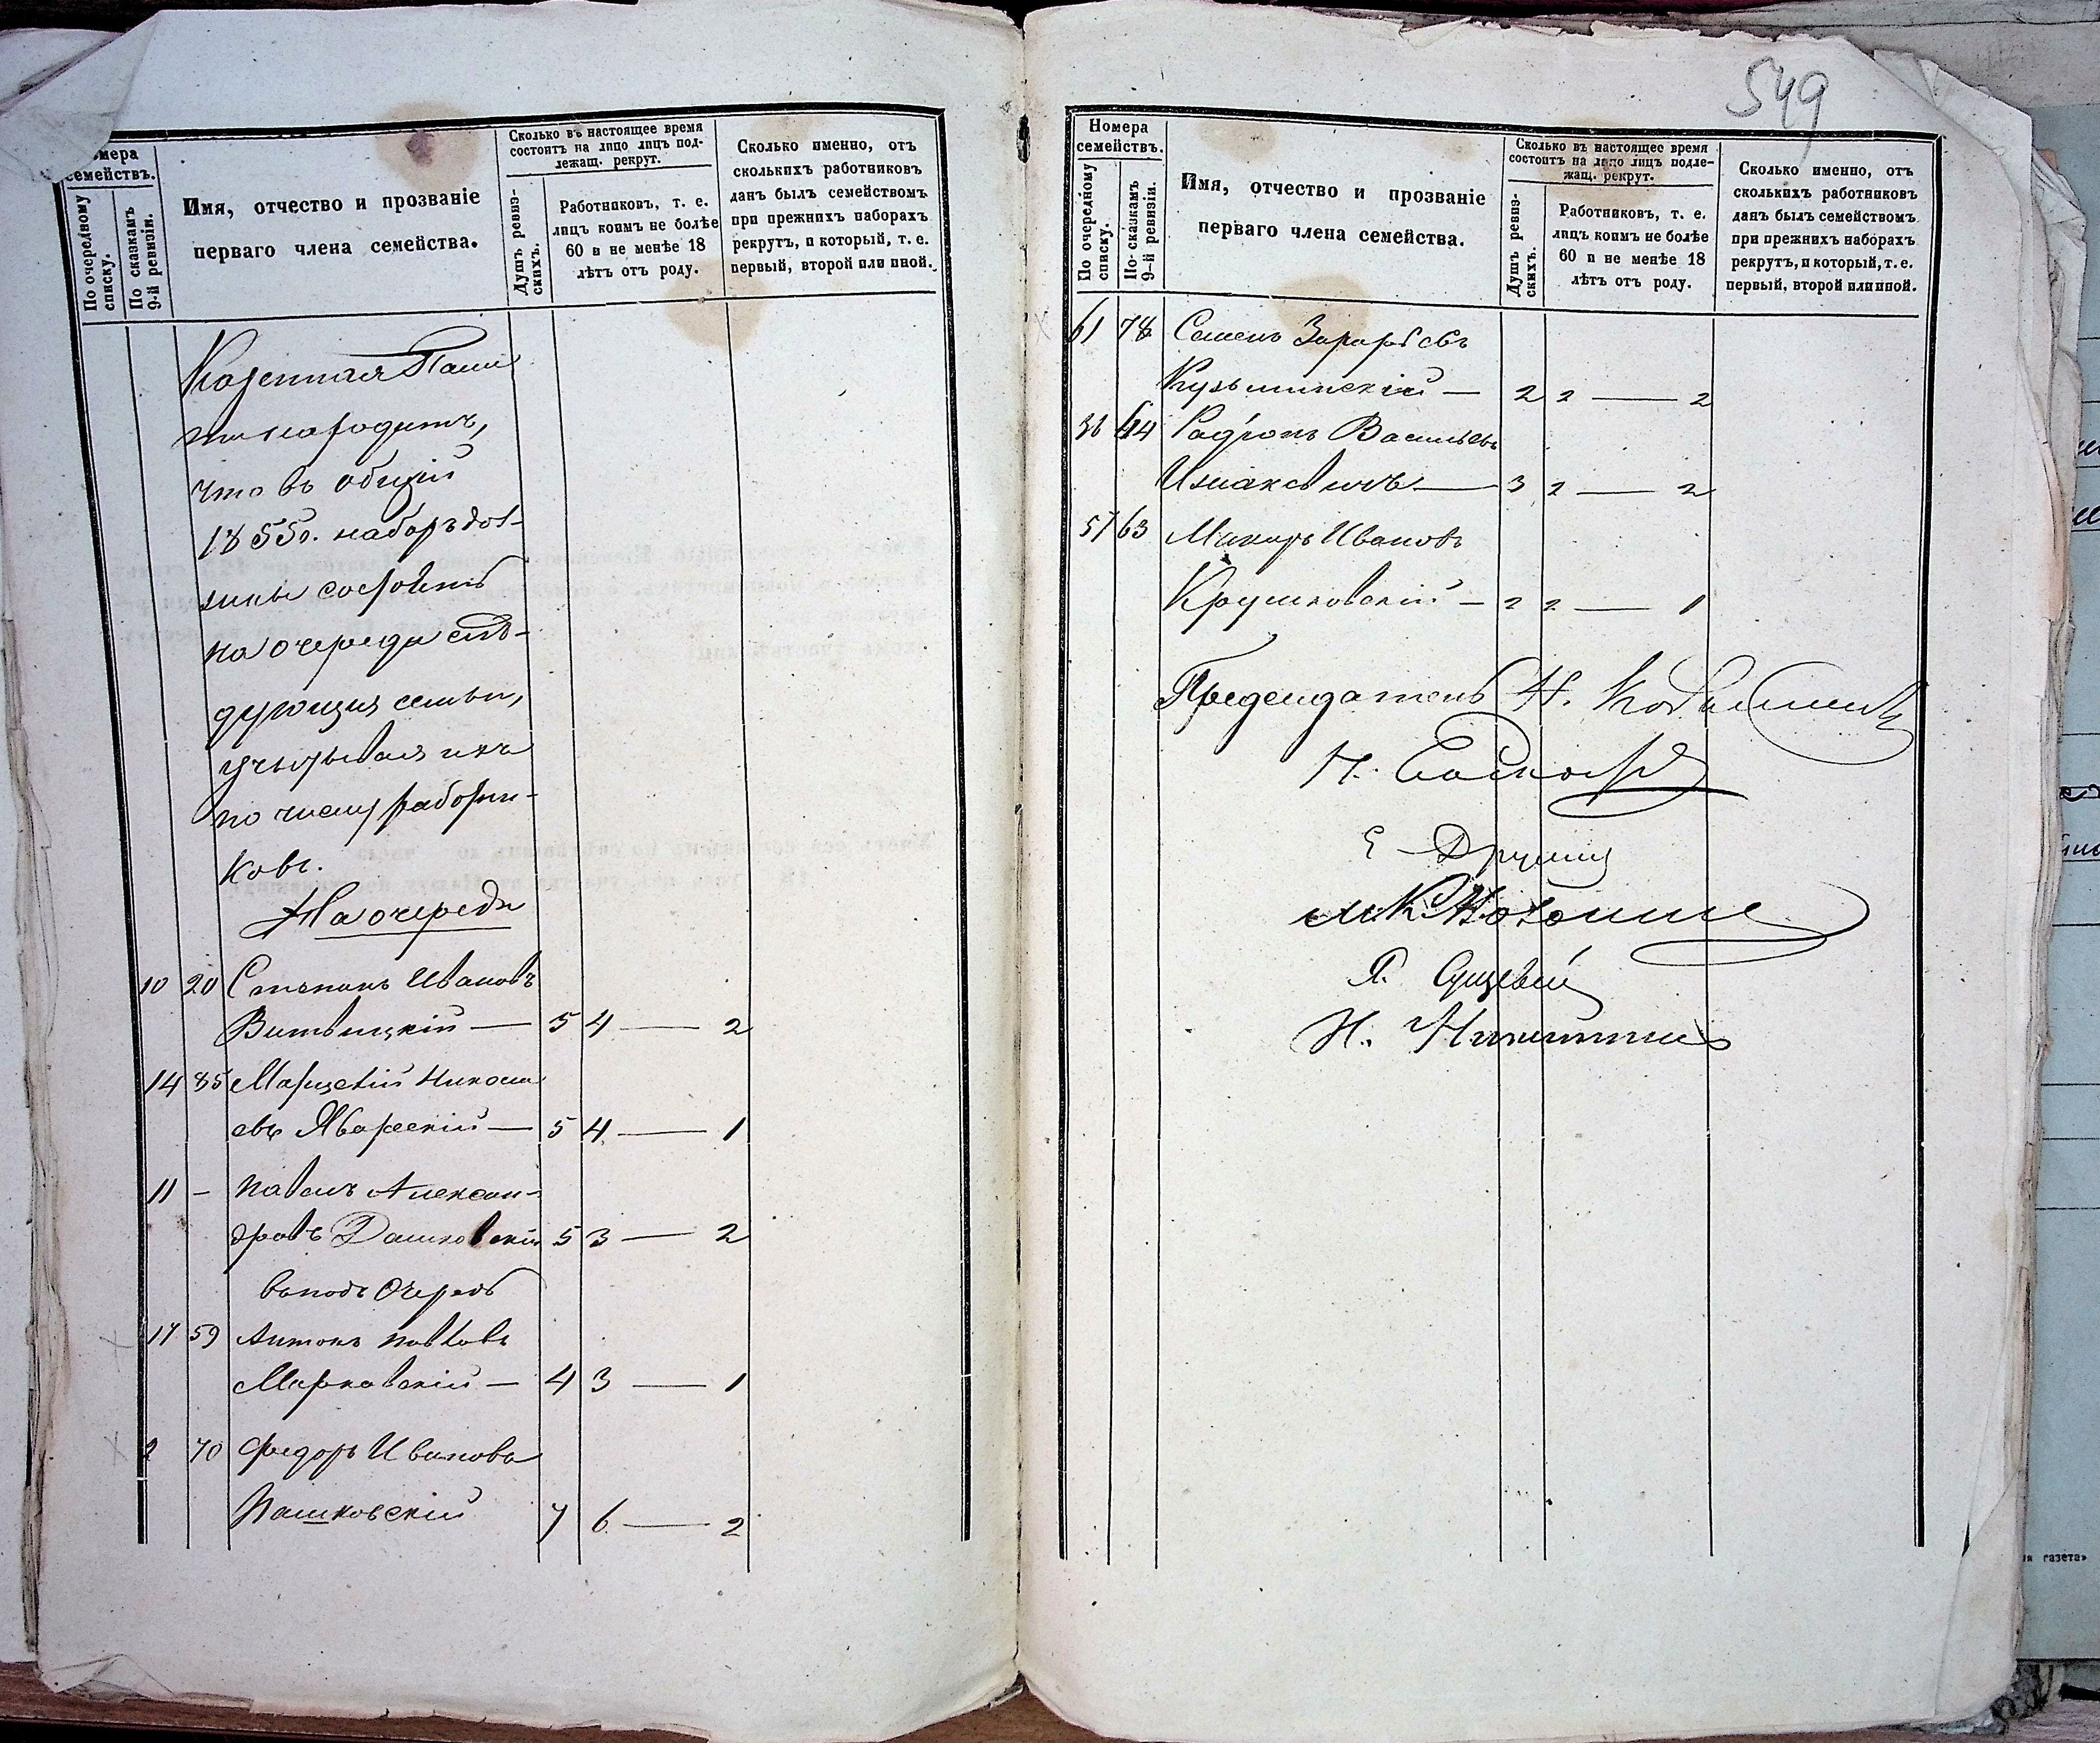 549
Номера
семействъ.
По очередному
списку.
По сказкамъ
9-й ревизіи.
Имя, отчество и прозваніе
перваго члена семейства.
Сколько въ настоящее время
состоитъ на лицо лицъ под-
лежащ. рекрут.
Душъ ревиз-
скихъ.
Работниковъ, т. е.
лицъ коимъ не болѣе
60 и не менѣе 18
лѣтъ отъ роду.
Сколько именно, отъ
сколькихъ работниковъ
данъ былъ семействомъ
при прежнихъ наборахъ
рекрутъ, и который, т. е.
первый, второй или иной.
Казенная Пала
та находитъ,
что въ общій
1855г. наборъ дол-
жны состоять
на очереди слѣ-
дующія семьи,
учитывая ихъ
по числу работни-
ковъ.
На очереди
10 20 Степанъ Ивановъ
Витвицкій — 5 4 — 2
14 85 Марцелій Никола
евъ Яворскій — 5 4 — 1
11 - Павелъ Алексан-
дровъ Дашковскій 5 3 — 2
въ подъ Очередь
17 59 Антонъ Павловъ
Марковскій — 4 3 — 1
2 70 Федоръ Ивановъ
Пашковскій 7 6 — 2
Номера
семействъ.
По очередному
списку.
По сказкамъ
9-й ревизіи.
Имя, отчество и прозваніе
перваго члена семейства.
Сколько въ настоящее время
состоитъ на лицо лицъ подле-
жащ. рекрут.
Душъ ревиз-
скихъ.
Работниковъ, т. е.
лицъ коимъ не болѣе
60 и не менѣе 18
лѣтъ отъ роду.
Сколько именно, отъ
сколькихъ работниковъ
данъ былъ семействомъ
при прежнихъ наборахъ
рекрутъ, и который, т. е.
первый, второй или иной.
61 78 Семенъ
Кузьминскій — 2 2 — 2
36 44 Радіонъ Васильевъ
— 3 2 — 2
57 63 Макаръ Ивановъ
Крушковскій — 2 2 — 1
Предсѣдатель Н.
Н.
Е.
Я.
Н. Никитинъ
газета»